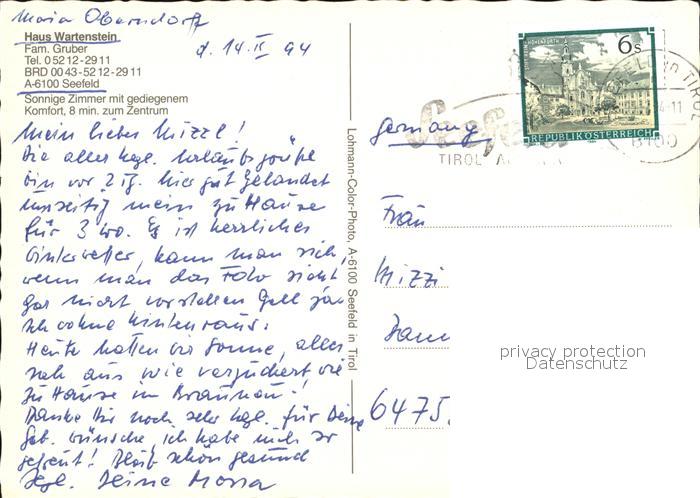 Maria Oberndorff
Haus Wartenstein
Fam. Gruber
Tel. 0 52 12 - 29 11
BRD 00 43 - 52 12 - 29 11
A-6100 Seefeld
Sonnige Zimmer mit gediegenem
Komfort, 8 min. zum Zentrum
d. 14. II 94
Mein lieber Mizzl!
Die aller hzgl. Urlaubsgrüße
bin vor 2 Tg. hier gut gelandet
mein zu Hause
für 3 Wo. Es ist herrliches
Winterwetter, kann man sich,
wenn man das Foto sieht
gar nicht vorstellen Gell ja
Ich wohne hinten raus.
Heute hatten wir Sonne, alles
sah aus wie verzuckert wie
zu Hause in Braunau!
Danke Dir noch sehr hzgl. für Deine
Geb. wünsche, ich habe mich so
gefreut! Bleib schön gesund
Hzgl. Deine Maria
Lohmann-Color-Photo, A-6100 Seefeld in Tirol
6s
REPUBLIK ÖSTERREICH
Seefeld
TIROL
6100
Germany
Frau
Mizzi
6475
privacy protection
Datenschutz